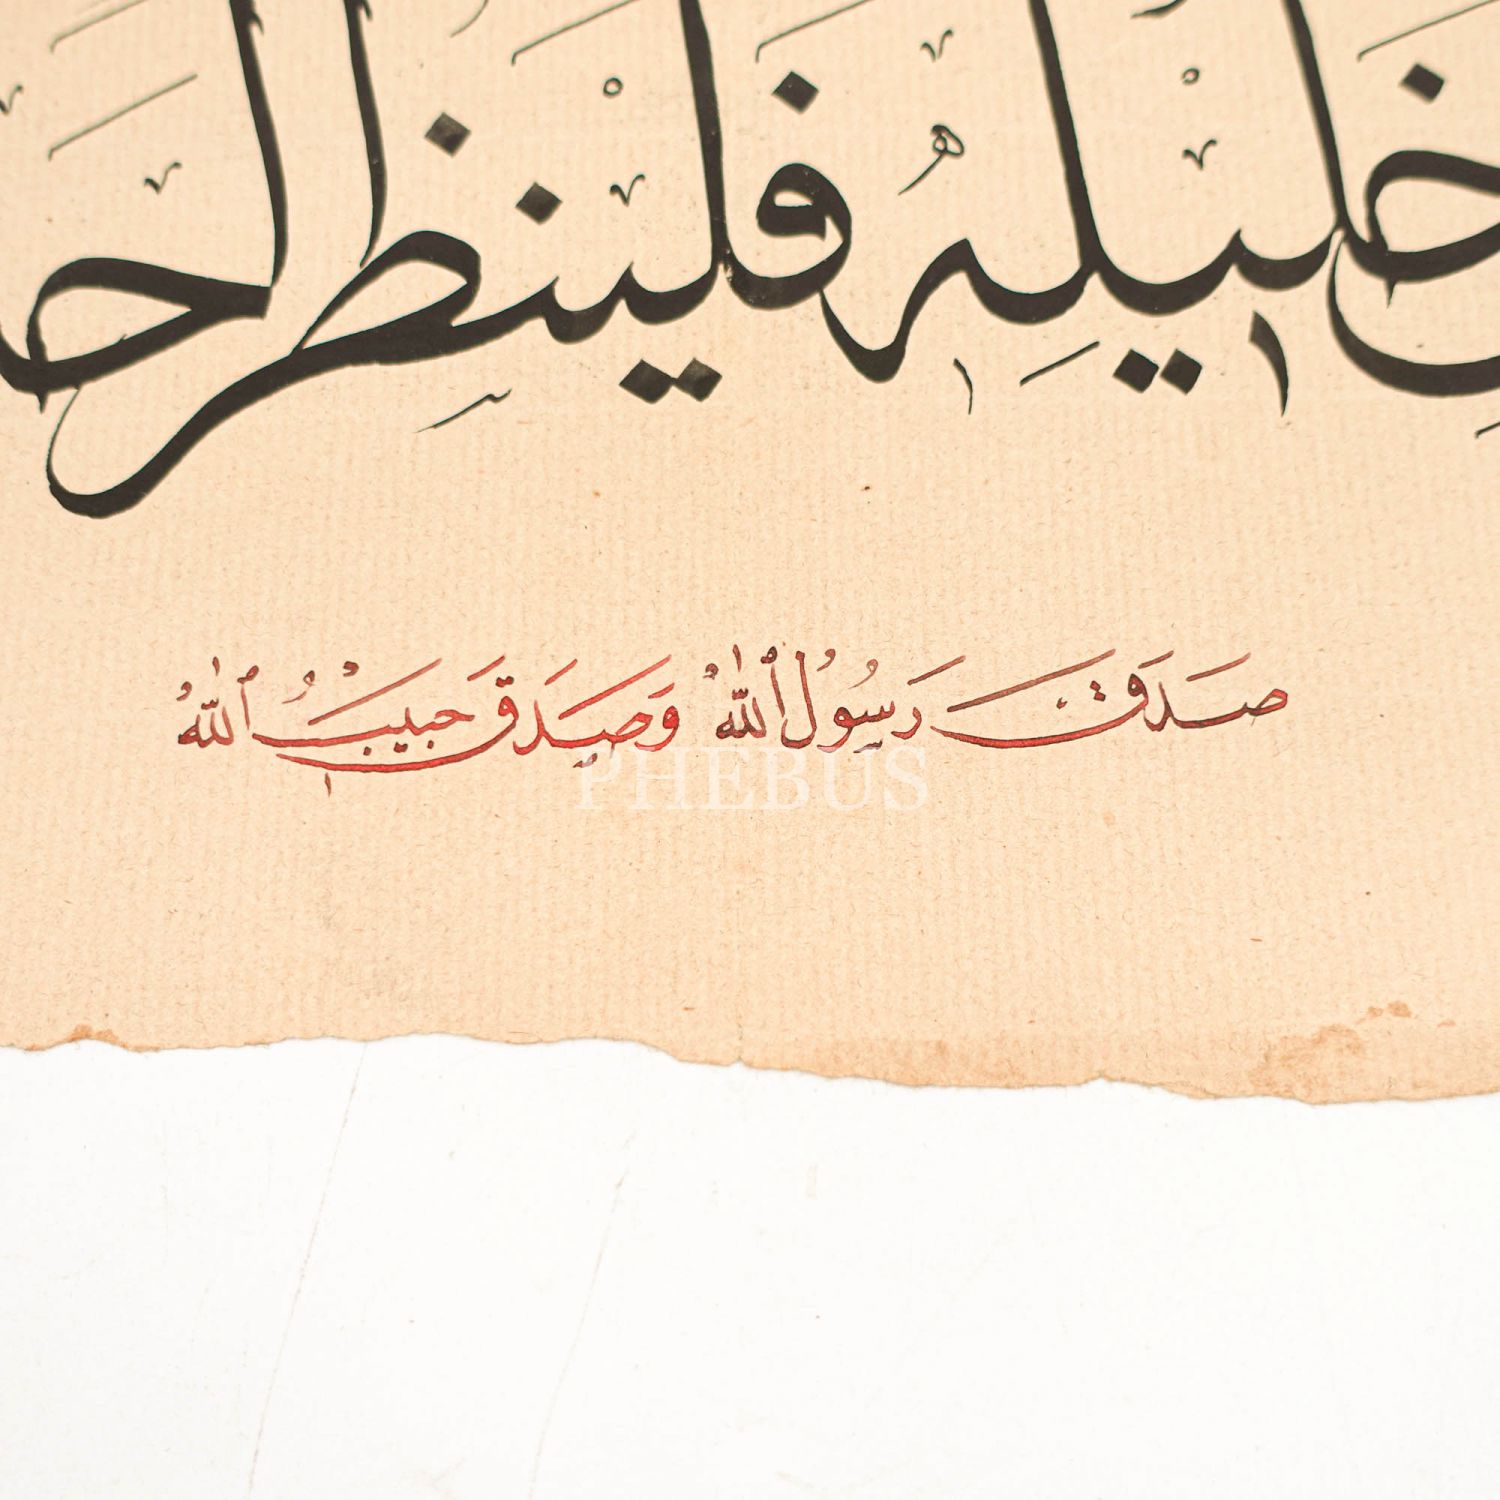 خليله فلينظر
صَدَقَ رَسُولُ اللّٰهُ وَصَدَقَ حَبيبُ اللّٰهُ
PHEBUS